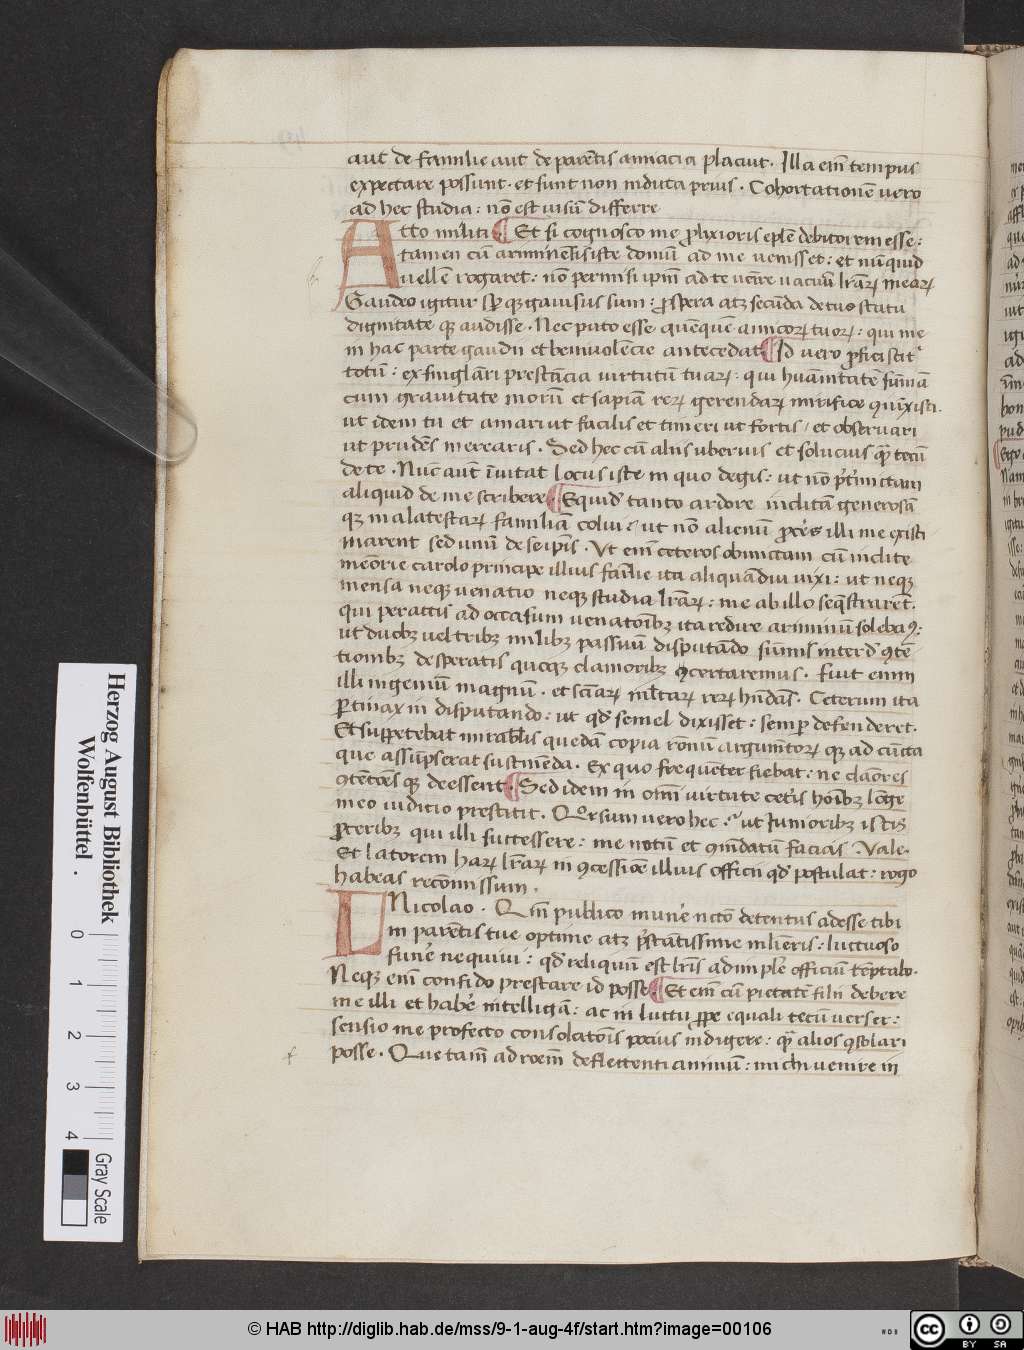 aut de familie aut de parentis amiacia placuit. Illa em̄ tempus
expectare possunt. et sunt non induta prius. Cohortationē vero
ad hec studia: nō est visū differre
Atto militi Et si cognosco me prolixioris eplē debitorem esse:
tamen cū ariminēsis iste domū ad me venisset: et nūquid
vellē rogaret: nō permisi ipm̄ ad te venire vacuū lrār meāꝝ
Gaudeo igitur spꝫ gauisus sum: prospera atꝫ secūda de tuo statu
dignitate ꝙ audisse. Nec puto esse quēquē amicoꝝ tuoꝝ: qui me
in hac parte gaudii et beniuolēcie antecedat Id vero proficiscit
totū: ex singlāri prestācia virtutū tuaꝝ: qui huānitatē sūmā
cum grauitate morū et sapiām reꝝ gerendaꝝ mirifice ꝯiūxisti.
ut idem tu et amari ut facilis et timeri ut fortis / et obseruari
ut prudēs merearis. Sed hec cū aliis uberius et solucius quā tecū
de te. Nūc aut̄ īuitat locus iste in quo degis: ut nō ptm̄ictam
aliquid de me scribere. Equid' tanto ardore inclitā generosā
qꝫ malatestaꝝ familiā colui: ut nō alienū proceres illi me existi
marent sed unū de seipīs. Ut em̄ ceteros obmictam cū inclite
meōrie carolo principe illius fāmlie ita aliquādiu vixi: ut neqꝫ
mensa neqꝫ venatio neqꝫ studia lrāꝝ: me ab illo seq̄strarēt.
qui peractis ad occasum venatoībꝫ ita redire ariminū solebaꝰ:
ut duobꝫ vel tribꝫ milibꝫ passuū disputādo sūmīs inter d' ꝯtē
tionibꝫ desperatis quoqꝫ clamoribꝫ ꝯcertaremus. Fuit enim
illi ingeniū magnū. et sciāꝝ mltāꝝ reꝝ hn̄dās. Ceterum ita
ꝑtinax in disputando: ut qd' semel dixisset: semꝑ defenderet.
Et suppetebat mirabīlis quedā copia rōnū argumtoꝝ qꝫ ad cūcta
que assūpserat sustinēda. Ex quo frequēter fiebat: ne clāores
ꝯtētōes qꝫ deessent Sed idem in om̄i virtute cetīs hoībꝫ lōge
meo iuditio prestitit. Qrsum vero hec. ut Iunioribꝫ istis
proceribꝫ qui illi successere: me notū et ꝯmēdatū facias. Vale.
Et latorem haꝝ lrāꝝ in ꝯcessiōe illius officii qd' postulat: rogo
habeas recōmissum.
Nicolao. Qm̄ publico munē ncto detentus adesse tibi
in parētis tue optime atꝫ prestātissime mliēris: luctuoso
funē nequiui: qd' reliquū est lrīs adimplē officiū tēptabo.
Neqꝫ em̄ confido prestare id posse Et em̄ cū pietatē filii debere
me illi et habē intelligā: ac in luctu ꝓpe equali tecū verser:
sensio me profecto consolatōīs pocius indigere: quā alios ꝯsolari
posse. Que tam̄ ad rōem̄ deflectenti animū: michi venire in
Herzog August Bibliothek
Wolfenbüttel
0 1 2 3 4
Gray Scale
© HAB http://diglib.hab.de/mss/9-1-aug-4f/start.htm?image=00106
WDB
cc BY SA